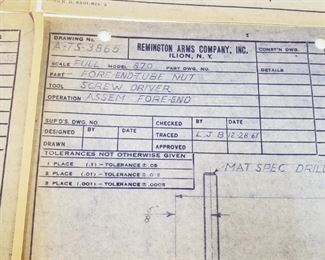 DRAWING NO.
A-TS-3866
REMINGTON ARMS COMPANY, INC.
ILION, N. Y.
CONST'N DWG.
SCALE FULL MODEL 870 PART DWG. NO.
DETAILS
PART FORE-END TUBE NUT
TOOL SCREW DRIVER
OPERATION ASSEM FORE-END
SUP'D'S. DWG. NO.
BY DATE
CHECKED BY DATE
DESIGNED
TRACED L.J.B 12-28-61
DRAWN
APPROVED
TOLERANCES NOT OTHERWISE GIVEN
1 PLACE (.1) -TOLERANCE ± .05
2 PLACE (.01) -TOLERANCE ± .015
3 PLACE (.001) -TOLERANCE ± .0005
MAT SPEC DRILL